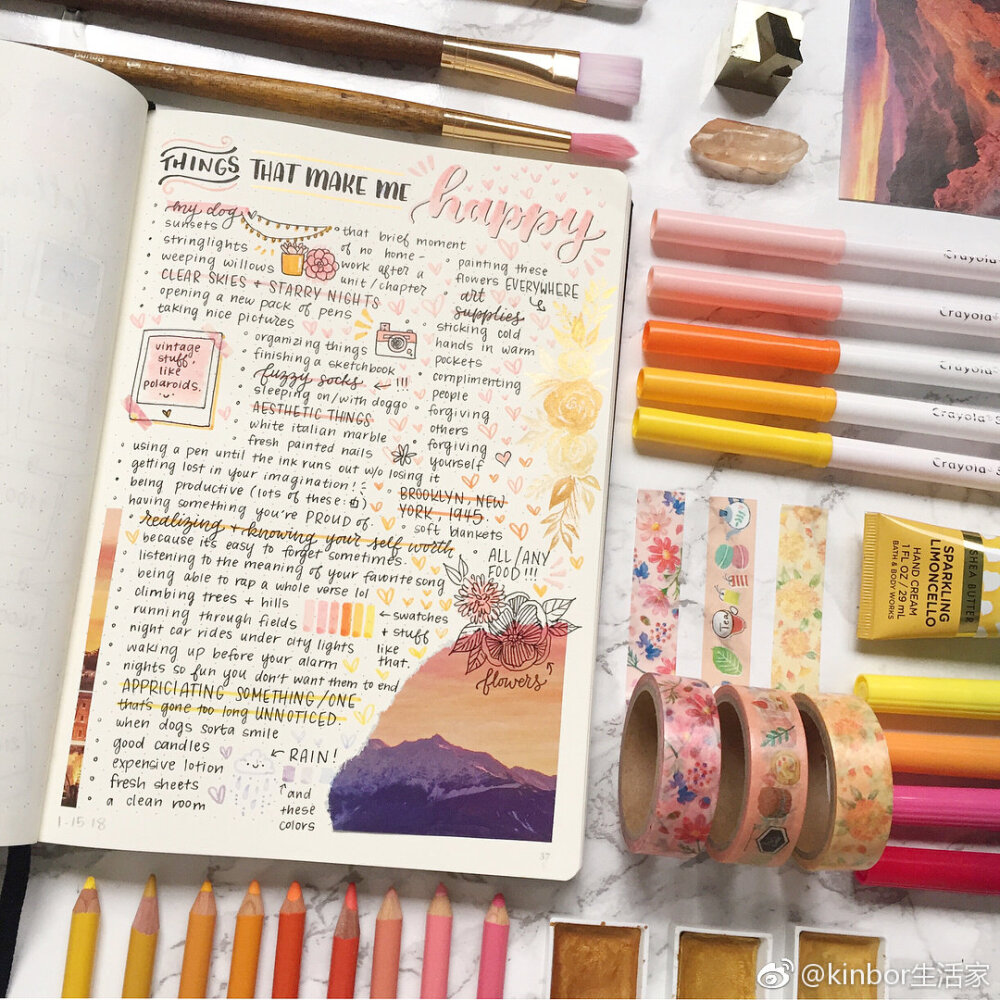 THINGS THAT MAKE ME happy
my dog
sunsets
stringlights
weeping willows
CLEAR SKIES + STARRY NIGHTS
opening a new pack of pens
taking nice pictures
that brief moment
of no home-
work after a
unit/chapter
painting these
flowers EVERYWHERE
art
supplies
sticking cold
hands in warm
pockets
complimenting
people
forgiving
others
forgiving
yourself
vintage
stuff,
like
polaroids.
organizing things
finishing a sketchbook
fuzzy socks ← !!!
sleeping on/with doggo
AESTHETIC THINGS
white italian marble
fresh painted nails
using a pen until the ink runs out w/o losing it
getting lost in your imagination!
being productive (lots of these: )
having something you're PROUD of.
BROOKLYN, NEW
YORK, 1945.
soft blankets
realizing + knowing your self worth
because it's easy to forget sometimes.
listening to the meaning of your favorite song
being able to rap a whole verse lol
climbing trees + hills
running through fields
night car rides under city lights
waking up before your alarm
nights so fun you don't want them to end
APPRICIATING SOMETHING/ONE
that's gone too long UNNOTICED.
when dogs sorta smile
good candles
expensive lotion
fresh sheets
a clean room
ALL/ANY
FOOD!!!
← swatches
+ stuff
like
that.
flowers
← RAIN!
and
these
colors
1-15-18
37
Crayola
Crayola
Crayola
Crayola
Crayola
SHEA BUTTER
SPARKLING
LIMONCELLO
HAND CREAM
1 FL OZ / 29 mL
BATH & BODY WORKS
@kinbor生活家